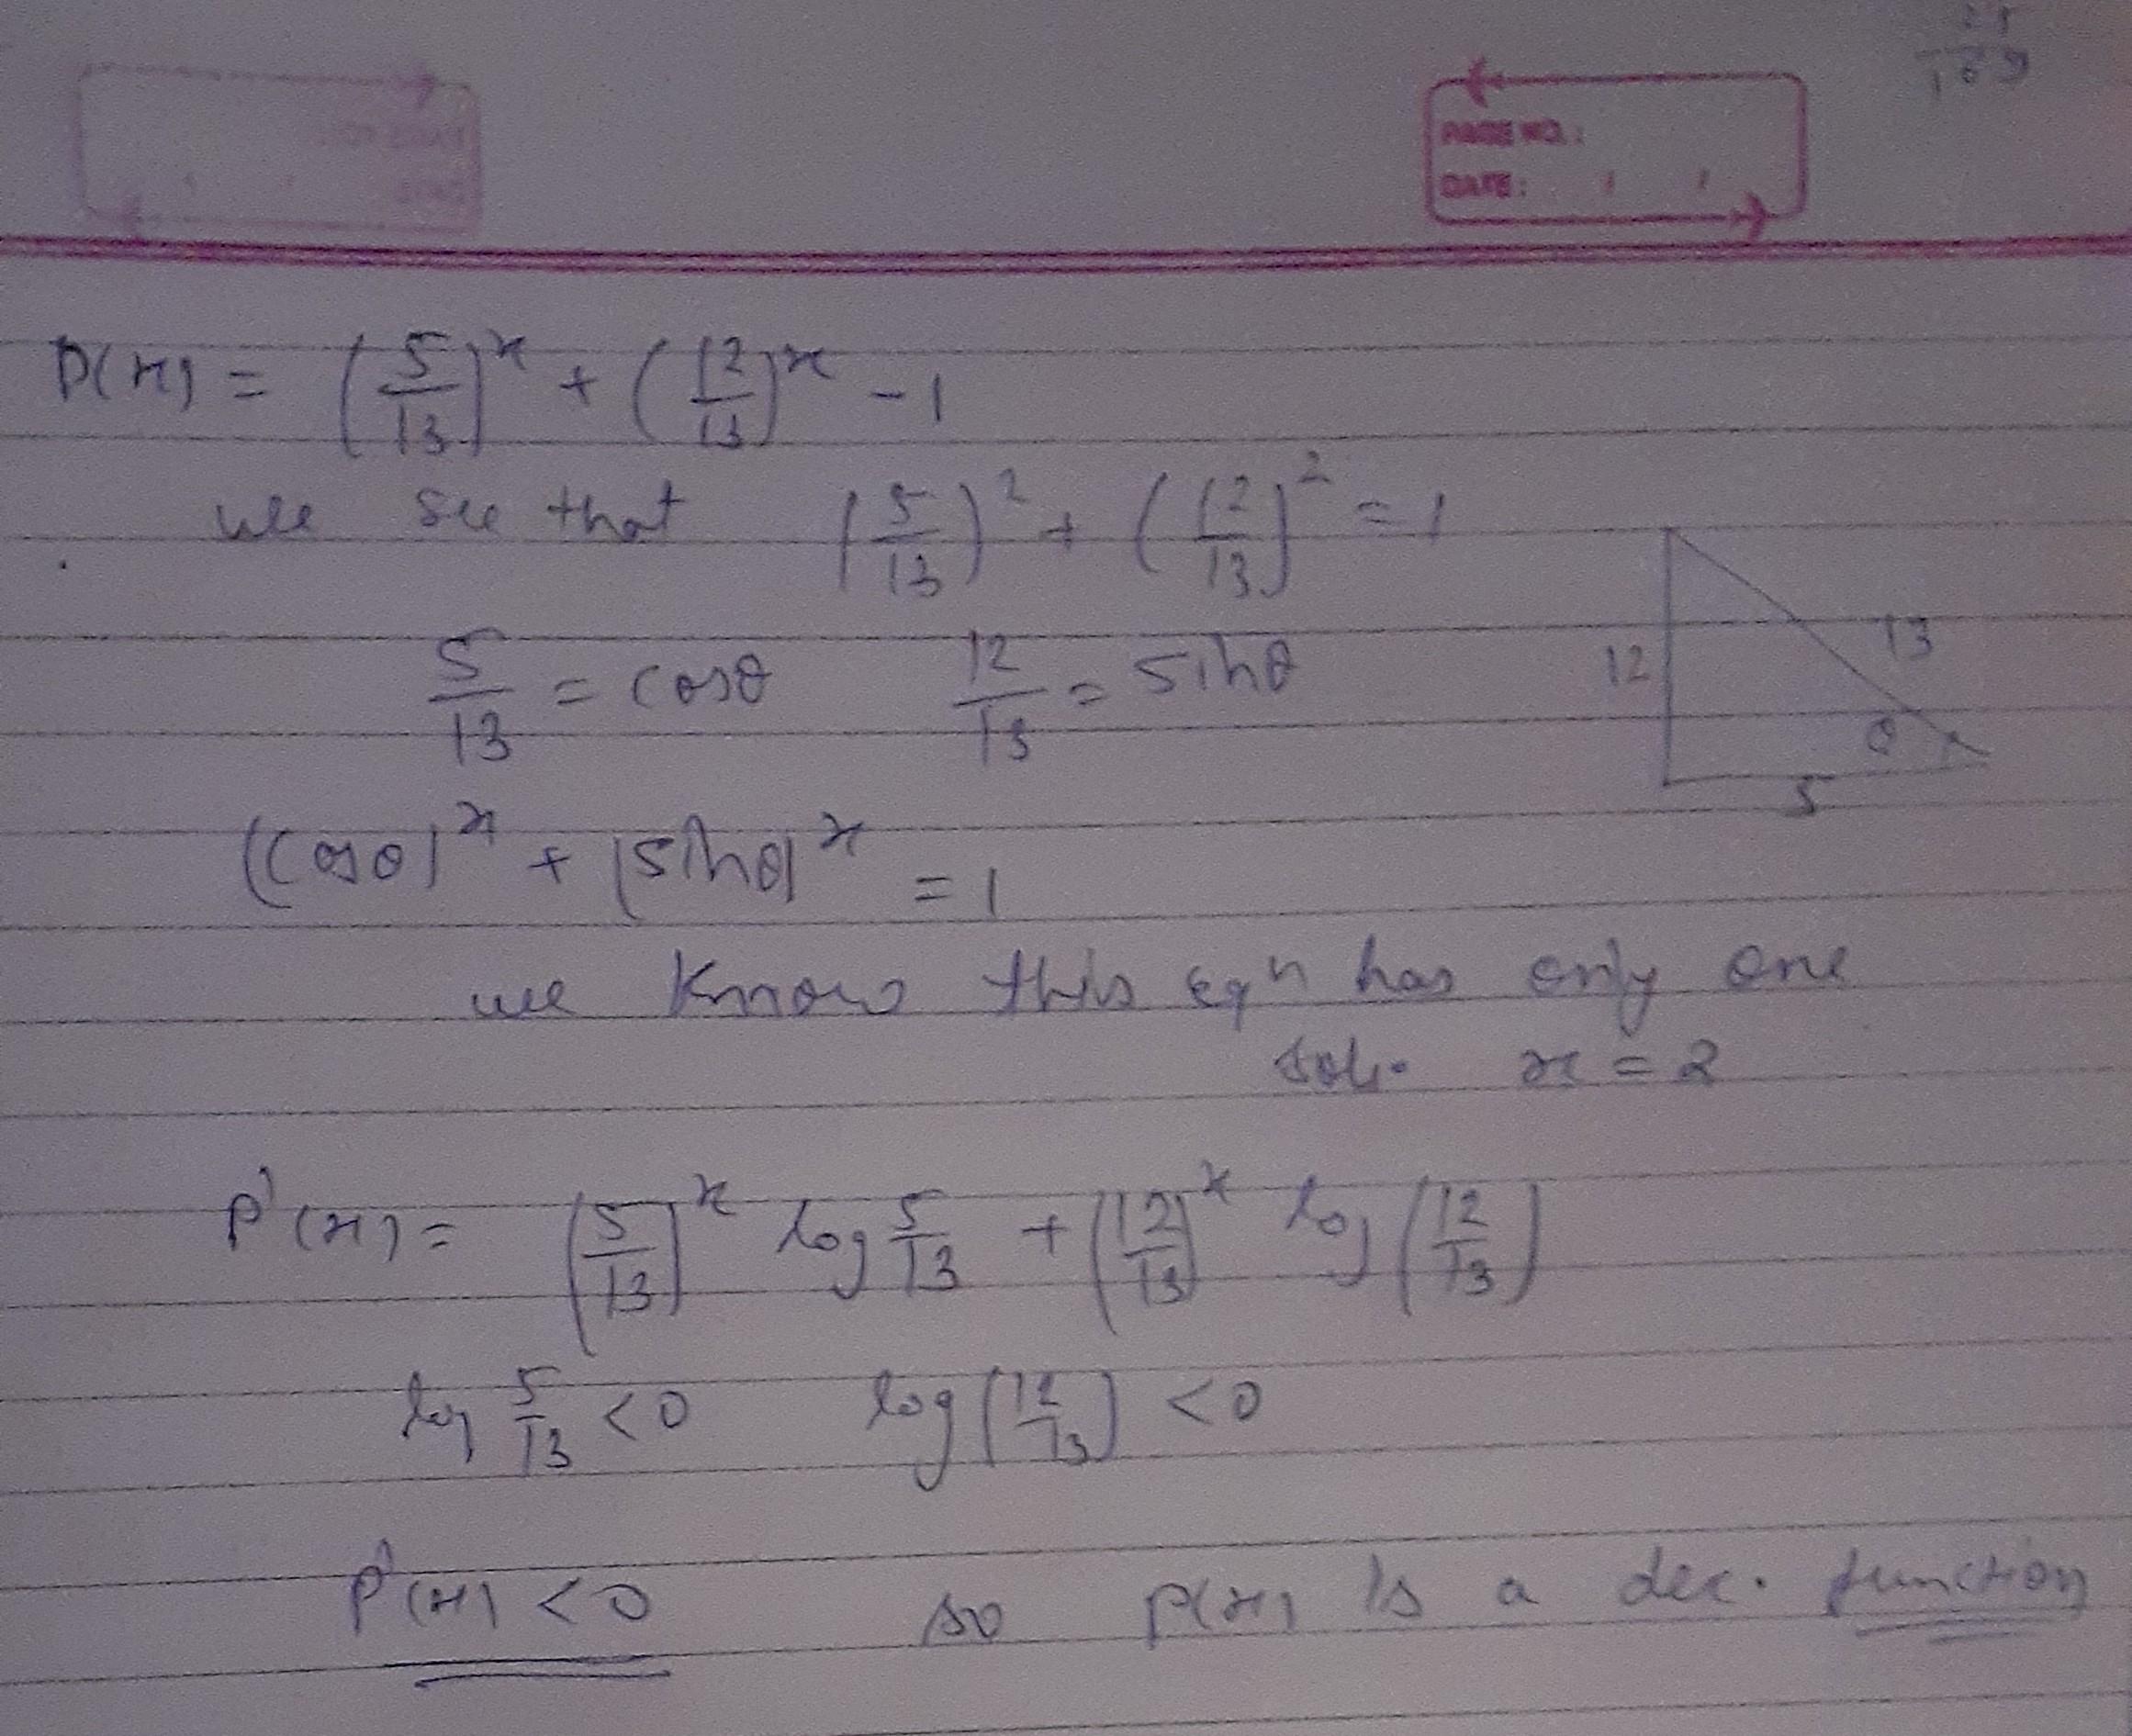 PAGE NO.:
DATE: / /
P(x) = (5/13)^x + (12/13)^x - 1
we see that (5/13)^2 + (12/13)^2 = 1
5/13 = cosθ 12/13 = sinθ
12
13
θ
5
(cosθ)^x + (sinθ)^x = 1
we know this eqn has only one
soln. x = 2
P'(x) = (5/13)^x log 5/13 + (12/13)^x log (12/13)
log 5/13 <0 log (12/13) <0
P'(x) <0 so P(x) is a dec. function